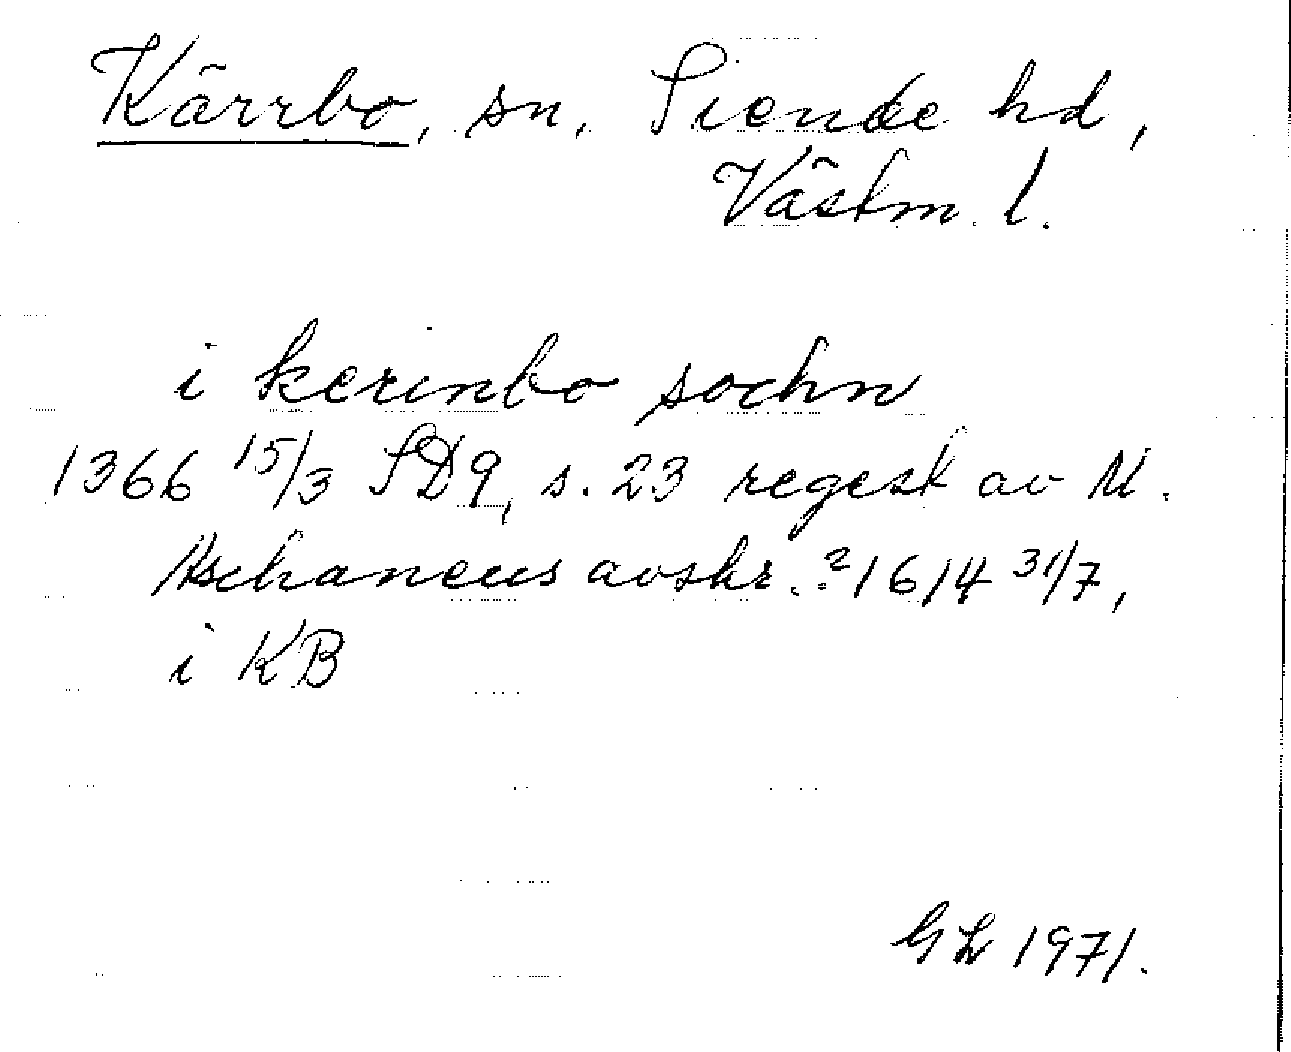 Kärrbo, sn, Siende hd,
Västm. l.
i kerinbo sochn
1366 15/3 SD9, s. 23 regest av M.
Aschaneus avskr. ? 1614 31/7,
i KB
GL 1971.